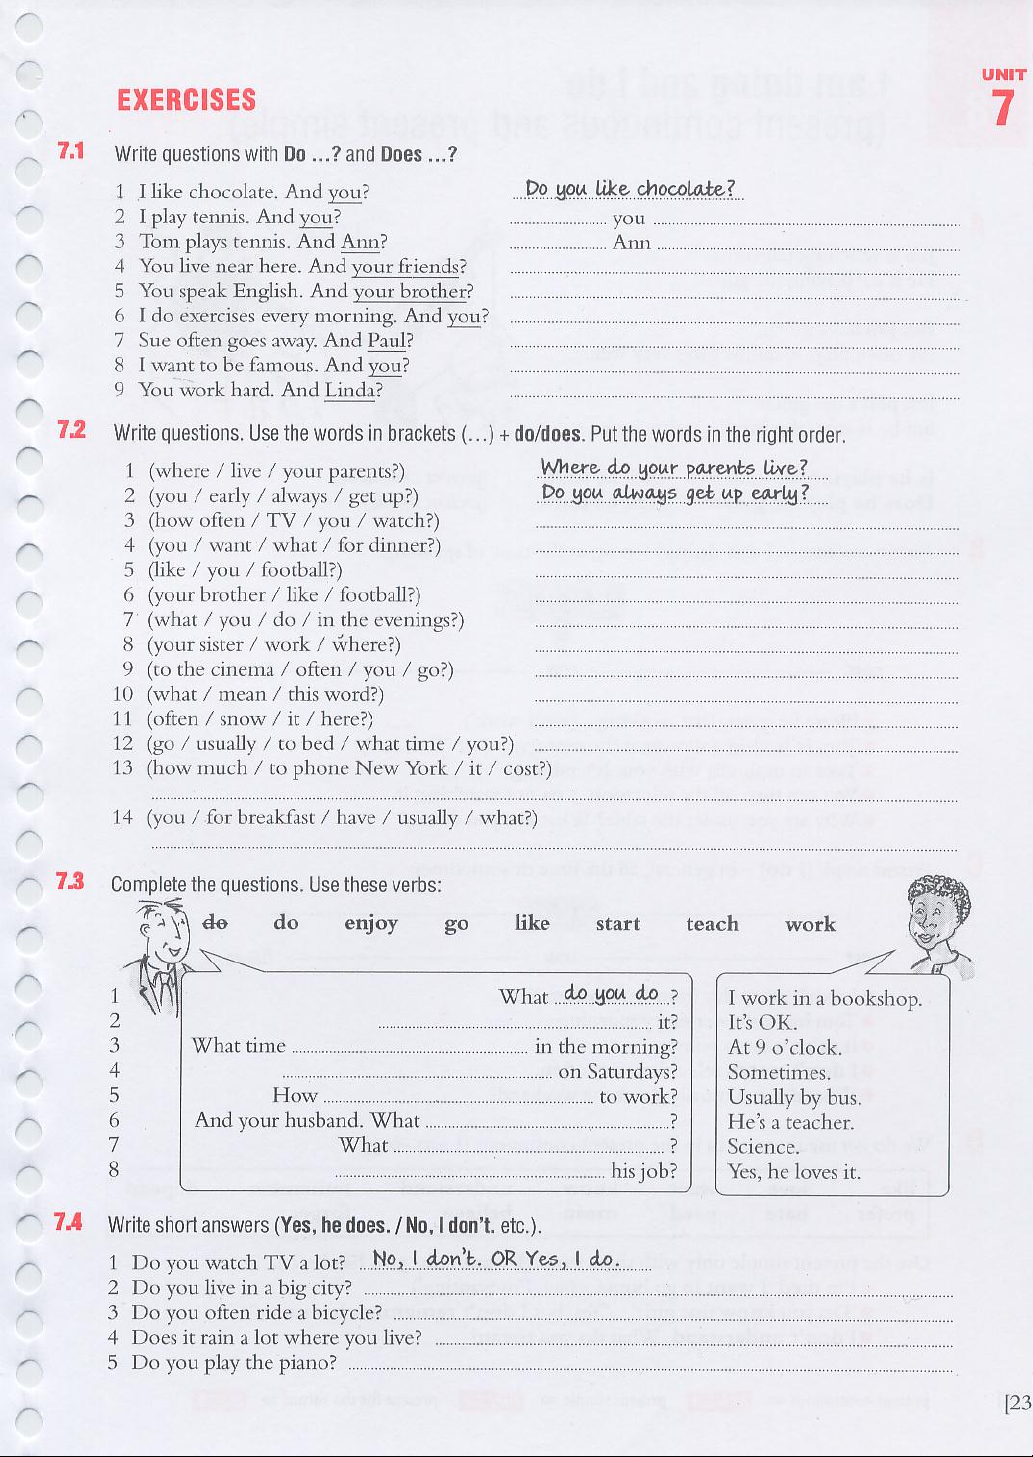 UNIT
7
EXERCISES
7.1 Write questions with Do ...? and Does ...?
1 I like chocolate. And you? Do you like chocolate?
2 I play tennis. And you? ........ you ........
3 Tom plays tennis. And Ann? ........ Ann ........
4 You live near here. And your friends? ........
5 You speak English. And your brother? ........
6 I do exercises every morning. And you? ........
7 Sue often goes away. And Paul? ........
8 I want to be famous. And you? ........
9 You work hard. And Linda? ........
7.2 Write questions. Use the words in brackets (...) + do/does. Put the words in the right order.
1 (where / live / your parents?) Where do your parents live?
2 (you / early / always / get up?) Do you always get up early?
3 (how often / TV / you / watch?) ........
4 (you / want / what / for dinner?) ........
5 (like / you / football?) ........
6 (your brother / like / football?) ........
7 (what / you / do / in the evenings?) ........
8 (your sister / work / where?) ........
9 (to the cinema / often / you / go?) ........
10 (what / mean / this word?) ........
11 (often / snow / it / here?) ........
12 (go / usually / to bed / what time / you?) ........
13 (how much / to phone New York / it / cost?)
........
14 (you / for breakfast / have / usually / what?)
........
7.3 Complete the questions. Use these verbs:
do do enjoy go like start teach work
1 What do you do ? I work in a bookshop.
2 ........ it? It's OK.
3 What time ........ in the morning? At 9 o'clock.
4 ........ on Saturdays? Sometimes.
5 How ........ to work? Usually by bus.
6 And your husband. What ........ ? He's a teacher.
7 What ........ ? Science.
8 ........ his job? Yes, he loves it.
7.4 Write short answers (Yes, he does. / No, I don't. etc.).
1 Do you watch TV a lot? No, I don't. OR Yes, I do.
2 Do you live in a big city? ........
3 Do you often ride a bicycle? ........
4 Does it rain a lot where you live? ........
5 Do you play the piano? ........
[23